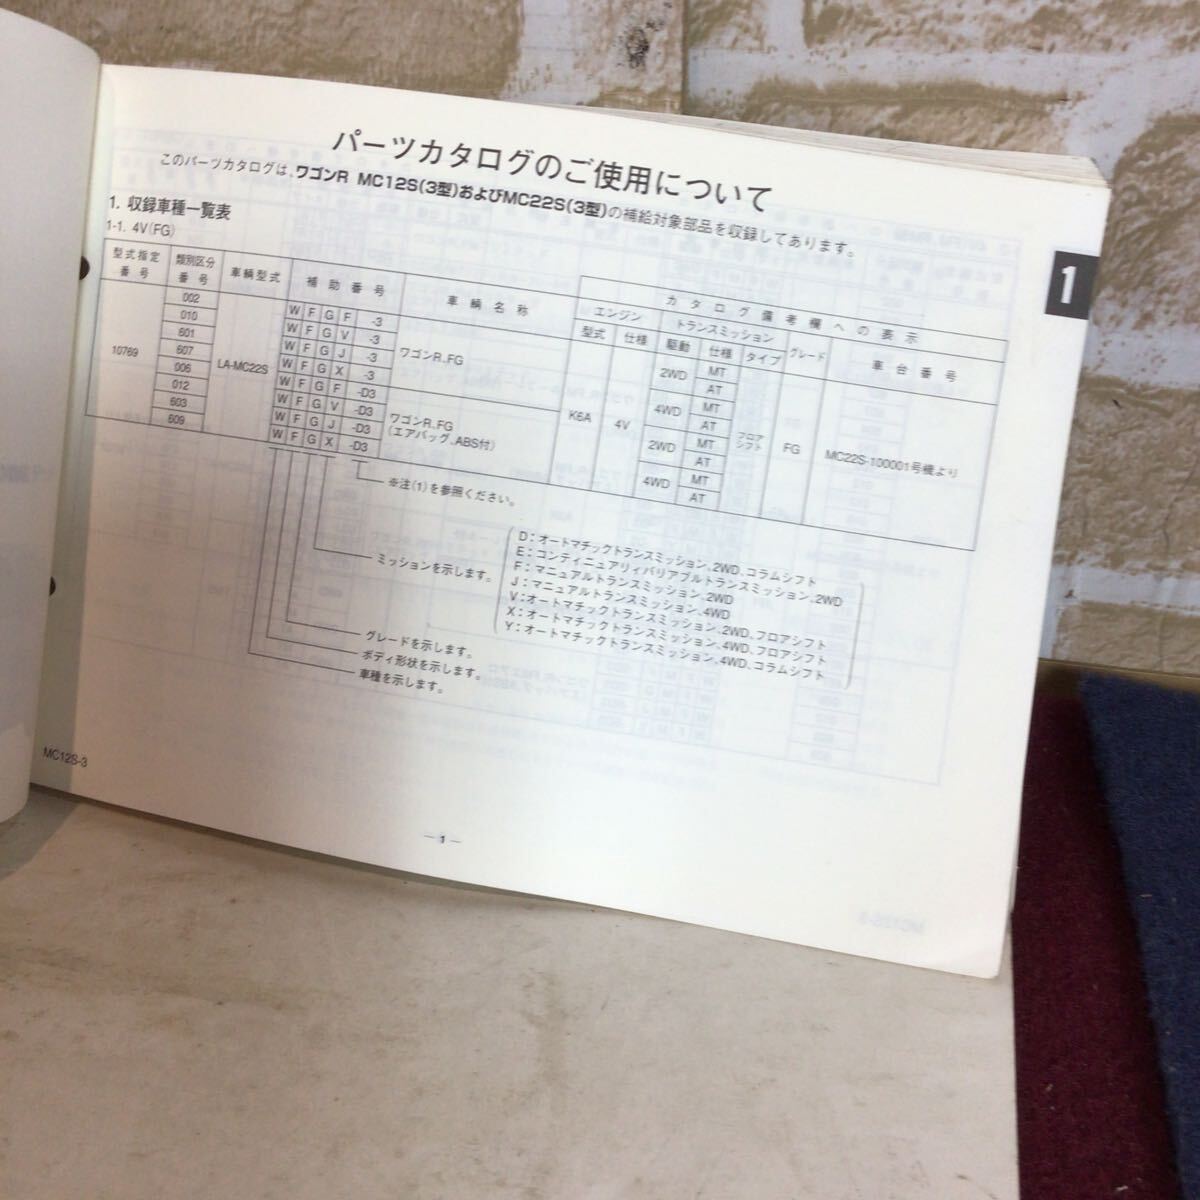 パーツカタログのご使用について
このパーツカタログは、ワゴンR MC12S(3型)およびMC22S(3型)の補給対象部品を収録してあります。
1
1. 収録車種一覧表
1-1. 4V(FG)
型式指定番号 類別区分番号 車輌型式 補助番号 車輌名称 カタログ備考欄への表示
エンジン トランスミッション グレード 車台番号
型式 仕様 駆動 仕様 タイプ
10769 LA-MC22S K6A 4V フロアシフト FG MC22S-100001号機より
002 W F G F -3 ワゴンR、FG 2WD MT
010 W F G V -3 AT
601 W F G J -3 4WD MT
607 W F G X -3 AT
006 W F G F -D3 ワゴンR、FG (エアバッグ、ABS付) 2WD MT
012 W F G V -D3 AT
603 W F G J -D3 4WD MT
609 W F G X -D3 AT
※注(1)を参照ください。
ミッションを示します。
D:オートマチックトランスミッション、2WD、コラムシフト
E:コンティニュアリィバリアブルトランスミッション、2WD
F:マニュアルトランスミッション、2WD
J:マニュアルトランスミッション、4WD
V:オートマチックトランスミッション、2WD、フロアシフト
X:オートマチックトランスミッション、4WD、フロアシフト
Y:オートマチックトランスミッション、4WD、コラムシフト
グレードを示します。
ボディ形状を示します。
車種を示します。
MC12S-3
—1—